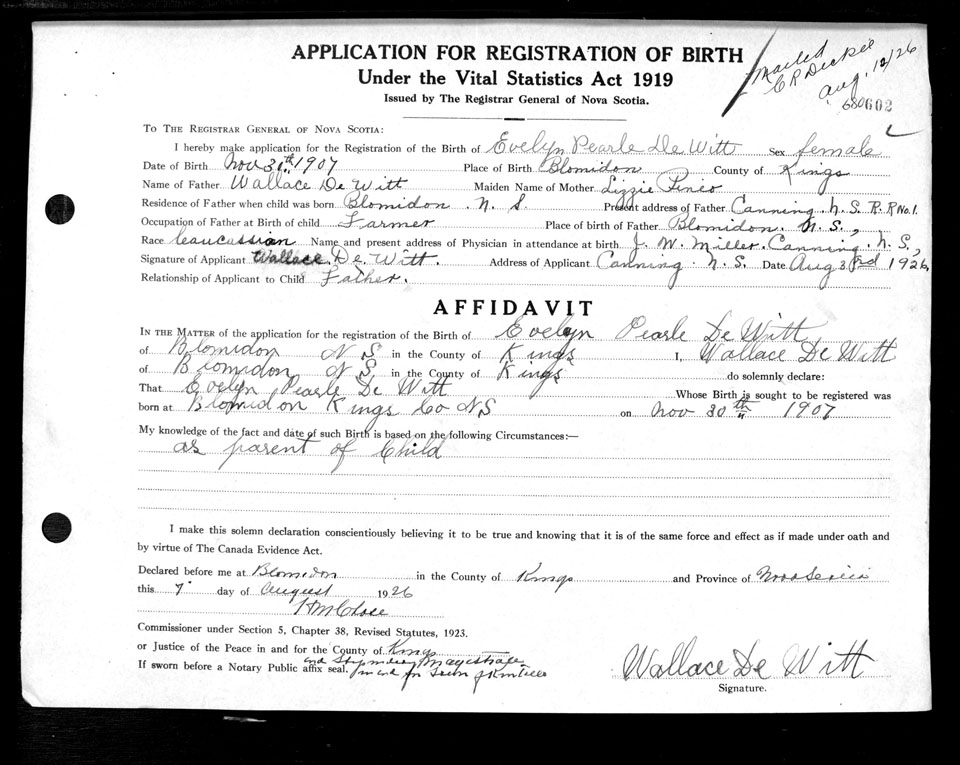 APPLICATION FOR REGISTRATION OF BIRTH
Under the Vital Statistics Act 1919
Issued by The Registrar General of Nova Scotia.
Mailed
Aug. 12/26
602
TO THE REGISTRAR GENERAL OF NOVA SCOTIA:
I hereby make application for the Registration of the Birth of Evelyn Pearle De Witt Sex female
Date of Birth Nov 30th 1907 Place of Birth Blomidon County of Kings
Name of Father Wallace De Witt Maiden Name of Mother Lizzie
Residence of Father when child was born Blomidon . N. S. Present address of Father Canning. N. S. R. R No. 1.
Occupation of Father at Birth of child Farmer Place of birth of Father Blomidon. N. S.,
Race Caucassian Name and present address of Physician in attendance at birth J. W. Miller. Canning. N. S,
Signature of Applicant Wallace De Witt. Address of Applicant Canning. N. S. Date Aug 3rd 1926,
Relationship of Applicant to Child Father.
AFFIDAVIT
IN THE MATTER of the application for the registration of the Birth of Evelyn Pearle De Witt
of Blomidon N S in the County of Kings I, Wallace De Witt
of Blomidon N S in the County of Kings do solemnly declare:
That Evelyn Pearle De Witt Whose Birth is sought to be registered was
born at Blomidon Kings Co NS on Nov 30th 1907
My knowledge of the fact and date of such Birth is based on the following Circumstances:—
as parent of Child
I make this solemn declaration conscientiously believing it to be true and knowing that it is of the same force and effect as if made under oath and
by virtue of The Canada Evidence Act.
Declared before me at Blomidon in the County of Kings and Province of Nova Scotia
this 7 day of August 1926
Commissioner under Section 5, Chapter 38, Revised Statutes, 1923.
or Justice of the Peace in and for the County of Kings
and Stipendiary Magistrate
If sworn before a Notary Public affix seal. in and for Town of Kentville
Wallace De Witt
Signature.